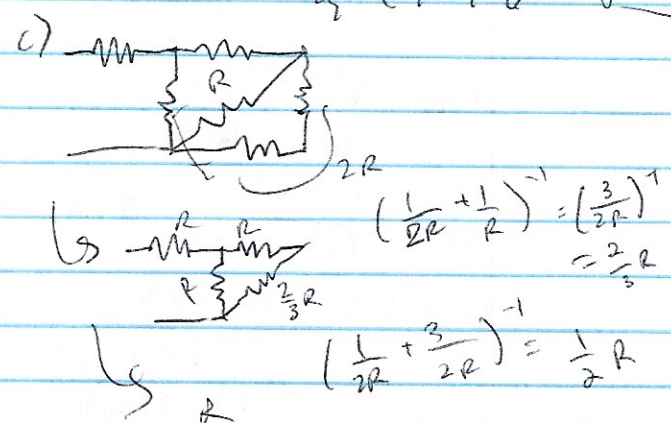 c)
R
2R
(1/2R + 1/R)^-1 = (3/2R)^-1
= 2/3 R
R R
R 2/3 R
(1/2R + 3/2R)^-1 = 1/2 R
R